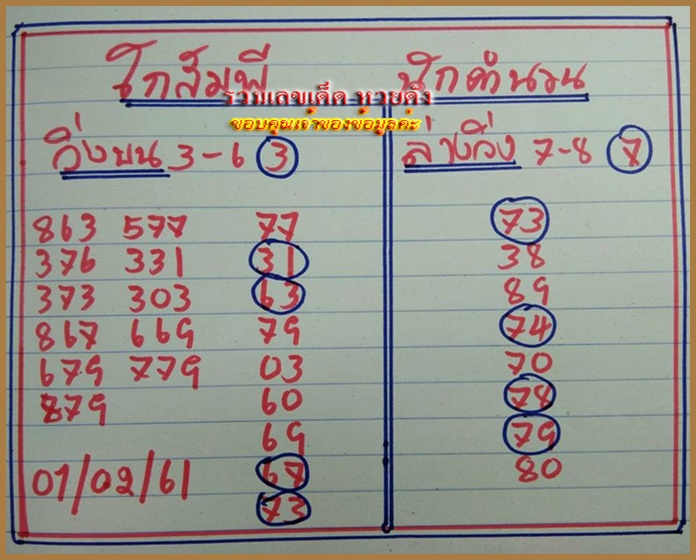 โกสัมพี นักคำนวน
รวมเลขเด็ด หวยดัง
ขอบคุณเจ้าของข้อมูลค่ะ
วิ่งบน 3-6 3
863 577 77
376 331 31
373 303 63
867 669 79
679 779 03
879 60
69
01/02/61 67
73
ล่างวิ่ง 7-8 7
73
38
89
74
70
78
79
80